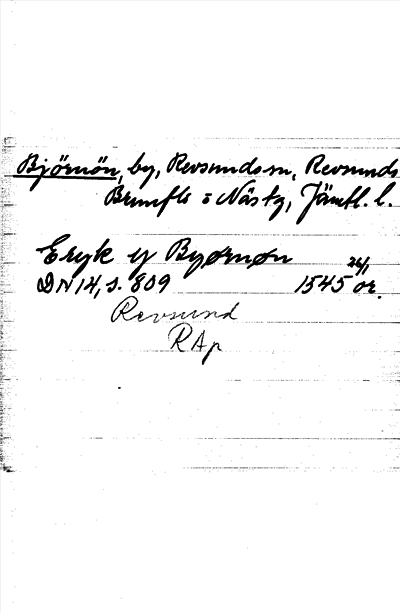 Björnön, by, Revsunds sn, Revsunds
Brunflo o Näs tg, Jämtl. l.
Eryk y Byørnøn
DN 14, s. 809 1545 26/1 or.
Revsund
RAp